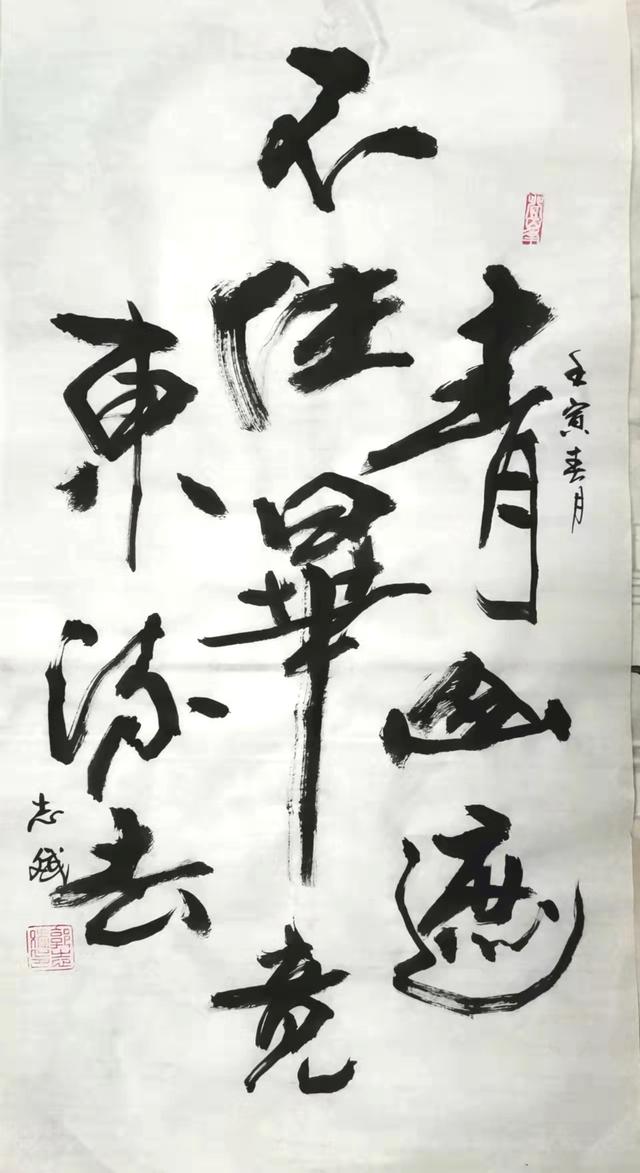 壬寅春月
青山遮
不住畢竟
東流去
志斌